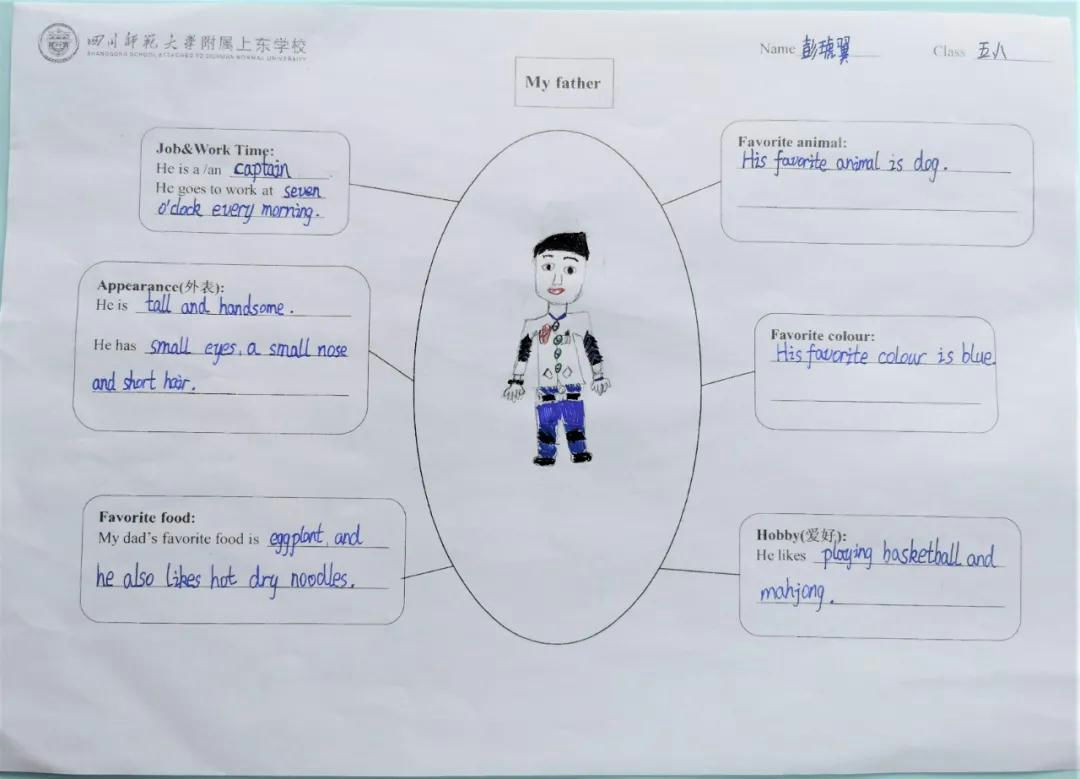 四川师范大学附属上东学校
SHANGDONG SCHOOL ATTACHED TO SICHUAN NORMAL UNIVERSITY
Name 彭琥翼
Class 五八
My father
Job&Work Time:
He is a /an captain
He goes to work at seven
o'clock every morning.
Appearance(外表):
He is tall and handsome.
He has small eyes, a small nose
and short hair.
Favorite food:
My dad's favorite food is eggplant, and
he also likes hot dry noodles.
Favorite animal:
His favorite animal is dog.
Favorite colour:
His favorite colour is blue.
Hobby(爱好):
He likes playing basketball and
mahjong.